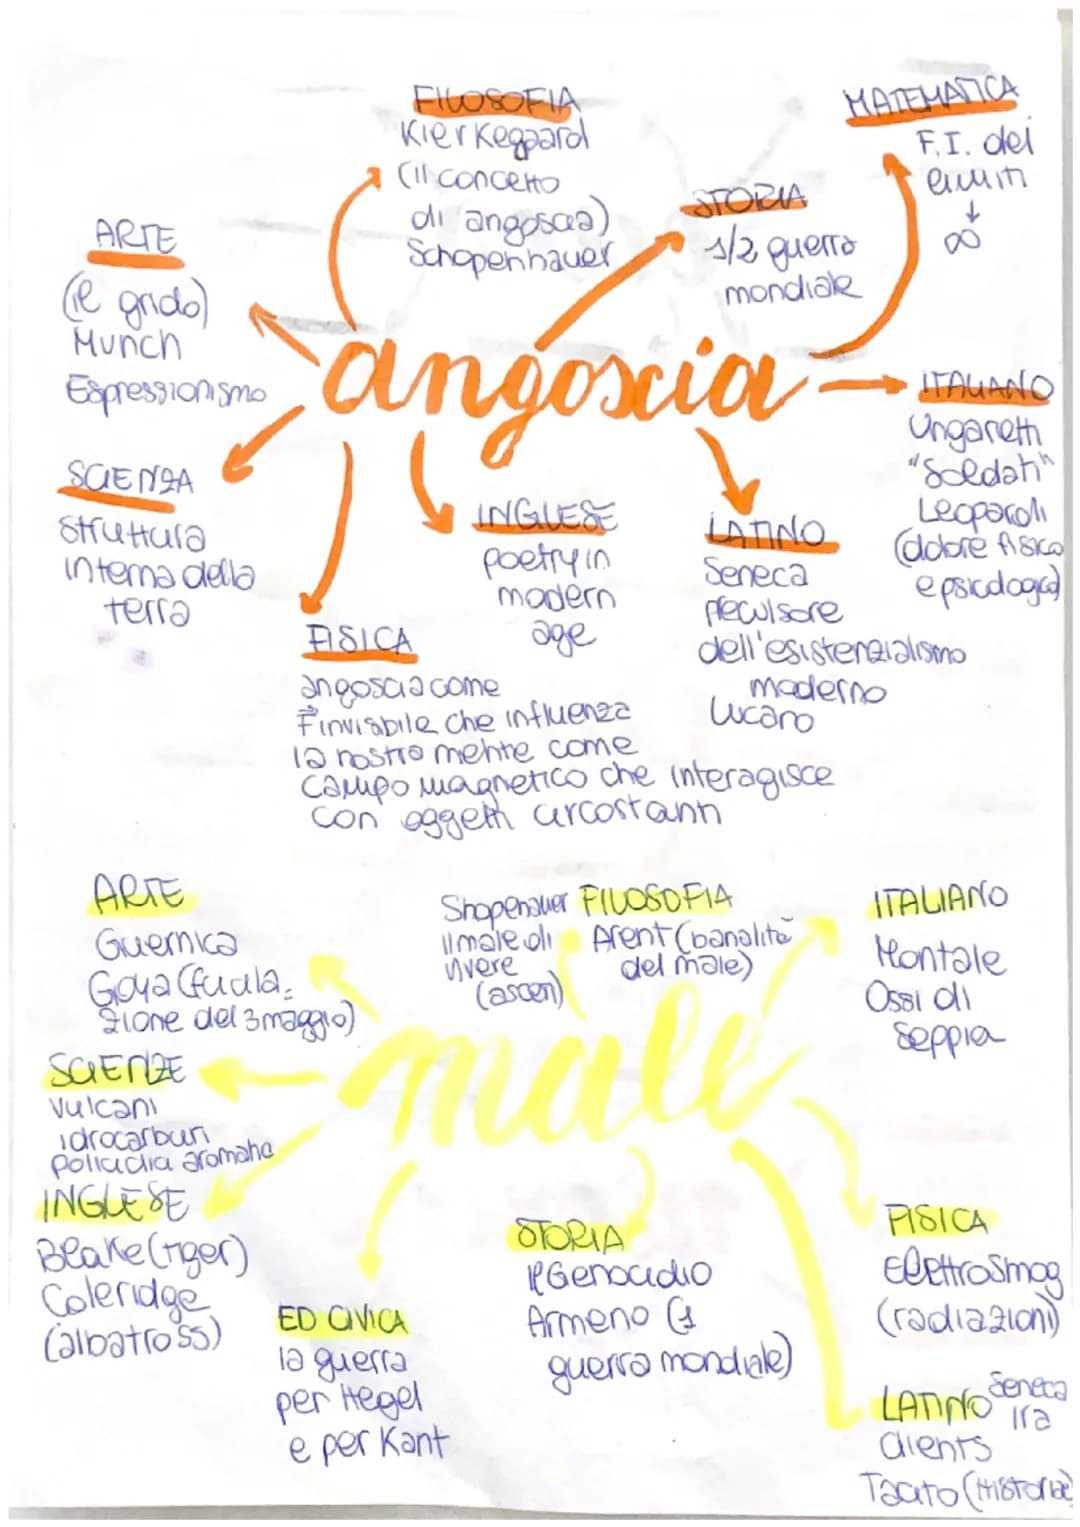 FILOSOFIA
Kierkegaard
(il concetto
di angoscia)
Schopenhauer
MATEMATICA
F.I. dei
limiti
↓
∞
STORIA
1/2 guerra
mondiale
ARTE
(il grido)
Munch
Espressionismo
angoscia
ITALIANO
Ungaretti
"Soldati"
Leopardi
(dolore fisico
e psicologico)
SCIENZA
struttura
interna della
terra
INGLESE
poetry in
modern
age
LATINO
Seneca
precursore
dell'esistenzialismo
moderno
Lucano
FISICA
angoscia come
F invisibile che influenza
la nostra mente come
campo magnetico che interagisce
con oggetti circostanti
ARTE
Guernica
Goya (fucila-
zione del 3 maggio)
Shopenauer
il male di
vivere
(ascen)
FILOSOFIA
Arent (banalità
del male)
ITALIANO
Montale
Ossi di
seppia
male
SCIENZE
vulcani
idrocarburi
policiclici aromatici
INGLESE
Blake (tiger)
Coleridge
(albatross)
ED CIVICA
la guerra
per Hegel
e per Kant
STORIA
il Genocidio
Armeno (1
guerra mondiale)
FISICA
Elettrosmog
(radiazioni)
LATINO Seneca
ira
clients
Tacito (Historiae)